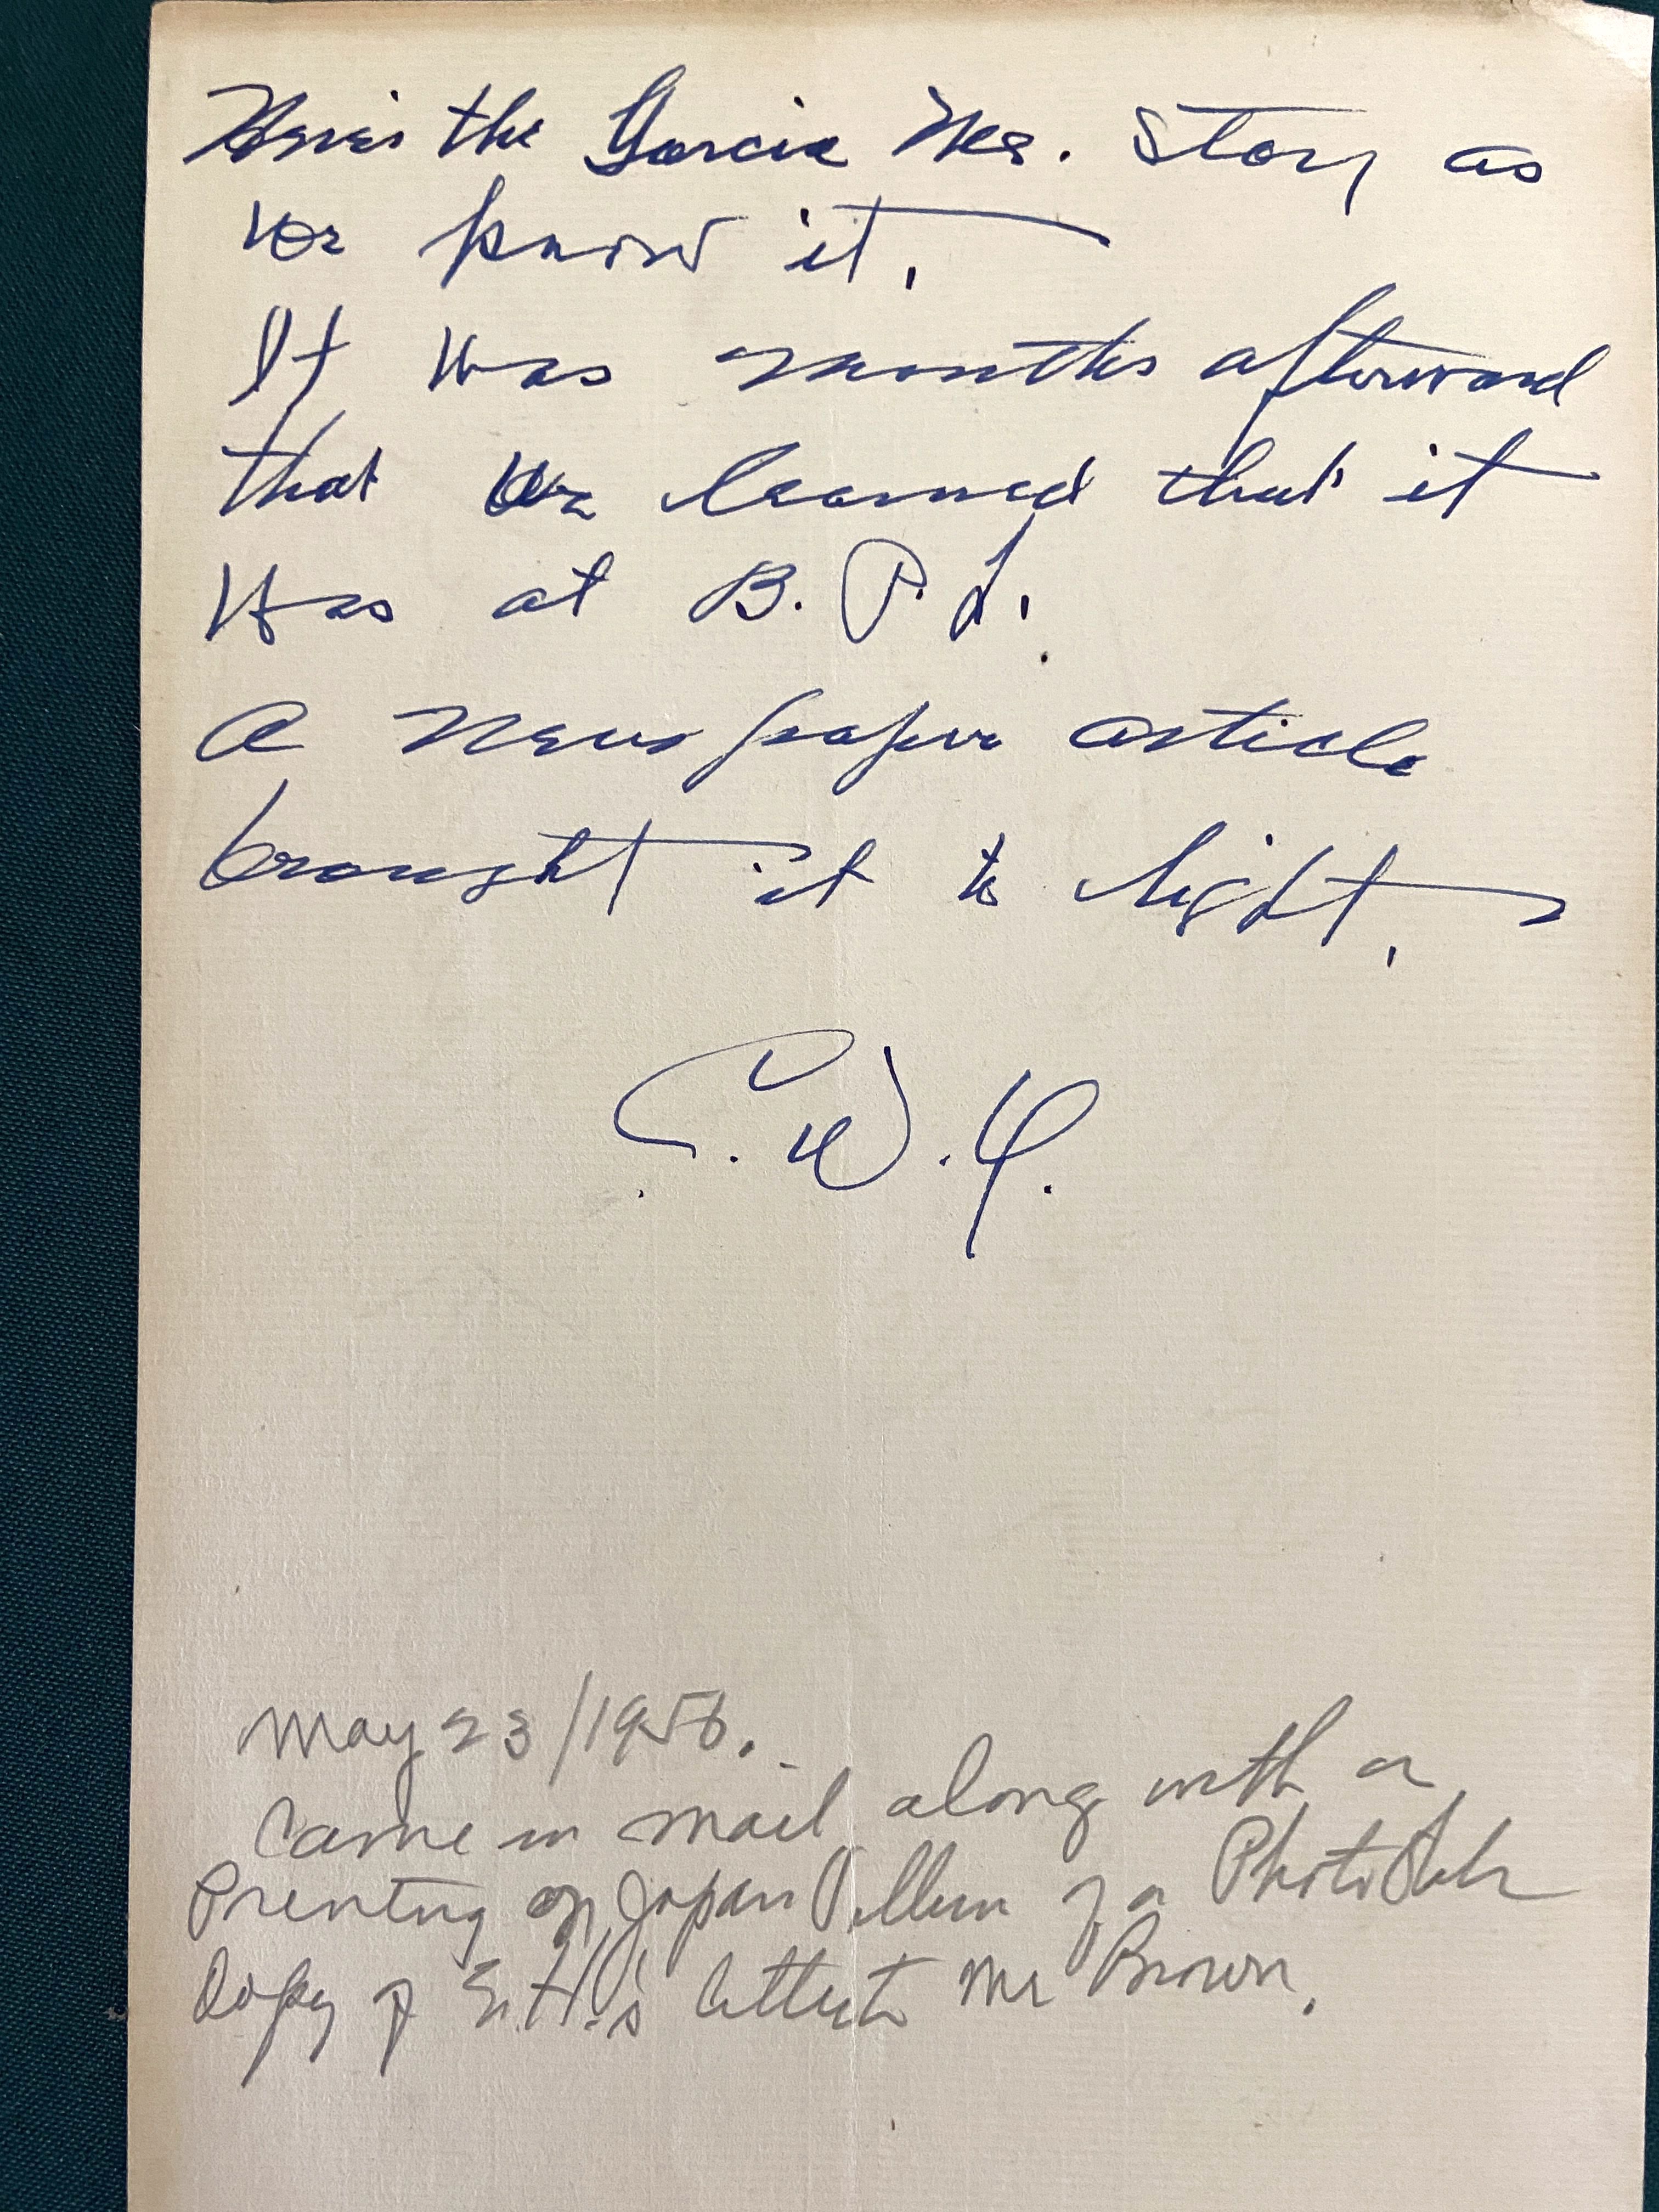 Here's the Garcia Mes. Story as
we know it.
It was months afterward
that we learned that it
was at B. P. L.
A newspaper article
brought it to light.
C. W. Y.
May 23/1956.
Came in mail along with a
Printing on Japan Vellum of a Photostat
Copy of E.H.'s letter to Mr Brown.